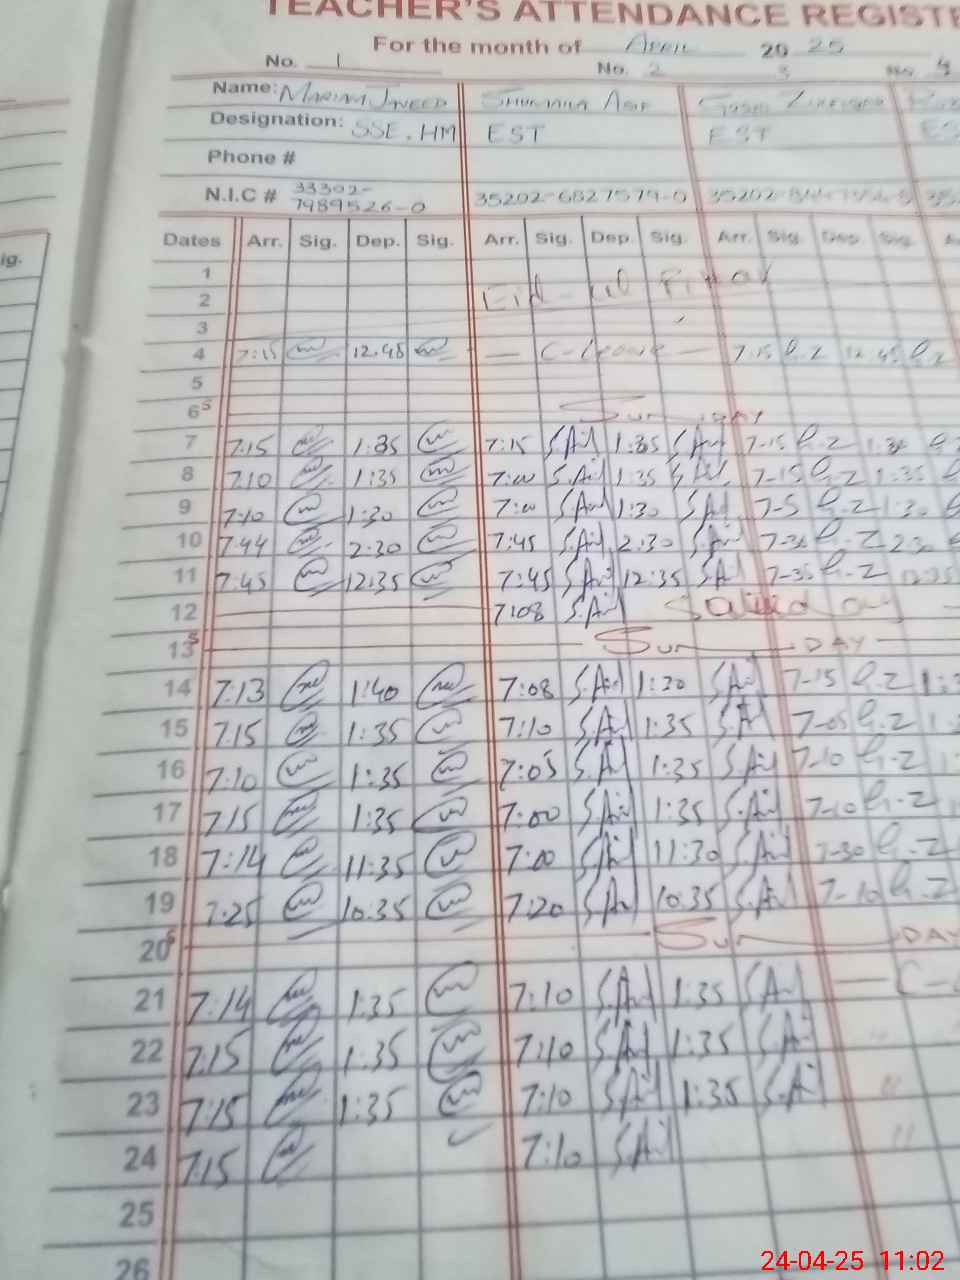 TEACHER'S ATTENDANCE REGISTE
For the month of April 2025
No. 1 No. 2 3 No. 4
Name: Mariam Javeed Shumaila Asif
Designation: SSE. HM EST EST ES
Phone #
N.I.C # 33302-7989526-0 35202-6827579-0 35202- 35
ig. Dates Arr. Sig. Dep. Sig. Arr. Sig. Dep. Sig. Arr. Sig. Dep. Sig. A
1
2 Eid-ul Fitar
3
4 7:15 12.45 — C-Leave — 7.15 G.Z 12.45 G.Z
5
6 S Sunday
7 7:15 1:35 7:15 S.Asif 1:35 S.Asif 7-15 G.Z 1:30
8 7:10 1:35 7:00 S.Asif 1:35 S.Asif 7-15 G.Z 1:35
9 7:10 1:30 7:00 S.Asif 1:30 S.Asif 7-5 G.Z 1:30
10 7:44 2:30 7:45 S.Asif 2:30 S.Asif 7-30 G.Z 2:30
11 7:45 12:35 7:45 S.Asif 12:35 S.Asif 7-35 G.Z 12:35
12 7:08 S.Asif
13 S Sun DAY
14 7:13 1:40 7:08 S.Asif 1:30 S.Asif 7-15 G.Z 1:3
15 7:15 1:35 7:10 S.Asif 1:35 S.Asif 7-05 G.Z 1
16 7:10 1:35 7:05 S.Asif 1:35 S.Asif 7-10 G.Z 1
17 7:15 1:35 7:00 S.Asif 1:35 S.Asif 7-10 G.Z
18 7:14 11:35 7:00 S.Asif 11:30 S.Asif 7-30 G.Z
19 7:25 10:35 7:20 S.Asif 10:35 S.Asif 7-10 G.Z
20 S Sun DAY
21 7:14 1:35 7:10 S.Asif 1:35 S.Asif — C-
22 7:15 1:35 7:10 S.Asif 1:35 S.Asif "
23 7:15 1:35 7:10 S.Asif 1:35 S.Asif "
24 7:15 7:10 S.Asif "
25
26
24-04-25 11:02